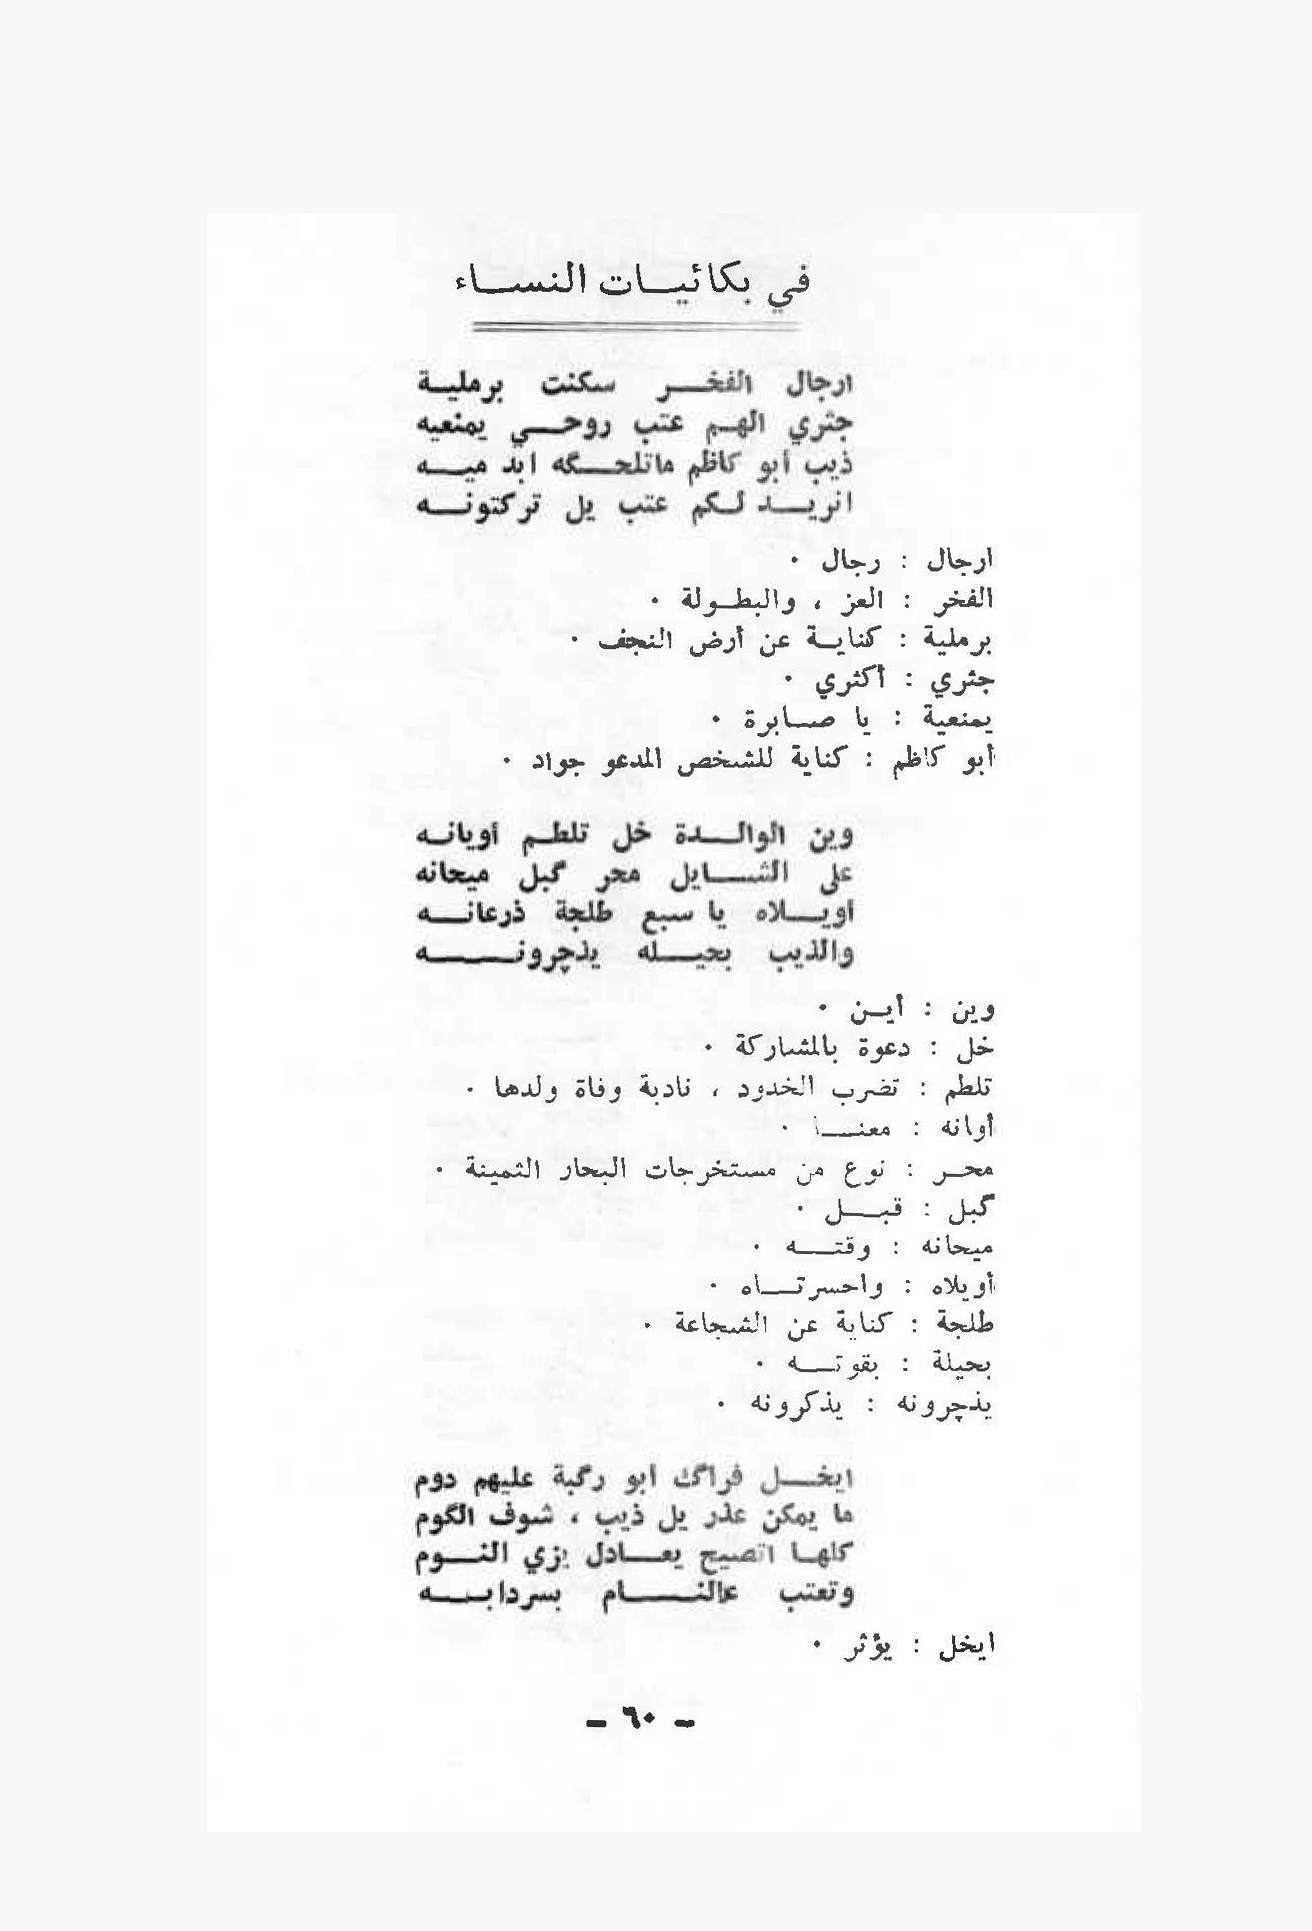 في بكائيات النساء
ارجال الفخر سكنت برملية
جثري الهم عتب روحي يمنعيه
ذيب أبو كاظم ماتلحگه ابد ميه
انريد لكم عتب يل تركتونه
ارجال : رجال ٠
الفخر : العز ، والبطولة ٠
برملية : كناية عن أرض النجف ٠
جثري : أكثري ٠
يمنعية : يا صابرة ٠
أبو كاظم : كناية للشخص المدعو جواد ٠
وين الوالدة خل تلطم أويانه
على الشايل محر گبل ميحانه
أويلاه يا سبع طلجة ذرعانه
والذيب بحيله يذچرونه
وين : أين ٠
خل : دعوة بالمشاركة ٠
تلطم : تضرب الخدود ، نادبة وفاة ولدها ٠
أوانه : معنا ٠
محر : نوع من مستخرجات البحار الثمينة ٠
گبل : قبل ٠
ميحانه : وقته ٠
أويلاه : واحسرتاه ٠
طلجة : كناية عن الشجاعة ٠
بحيلة : بقوته ٠
يذچرونه : يذكرونه ٠
ايخل فراگك أبو رگبة عليهم دوم
ما يمكن عذر يل ذيب ، شوف الگوم
كلها اتصيح يعادل بزي النوم
وتعتب عالنام بسردابه
ايخل : يؤثر ٠
– ٦٠ –